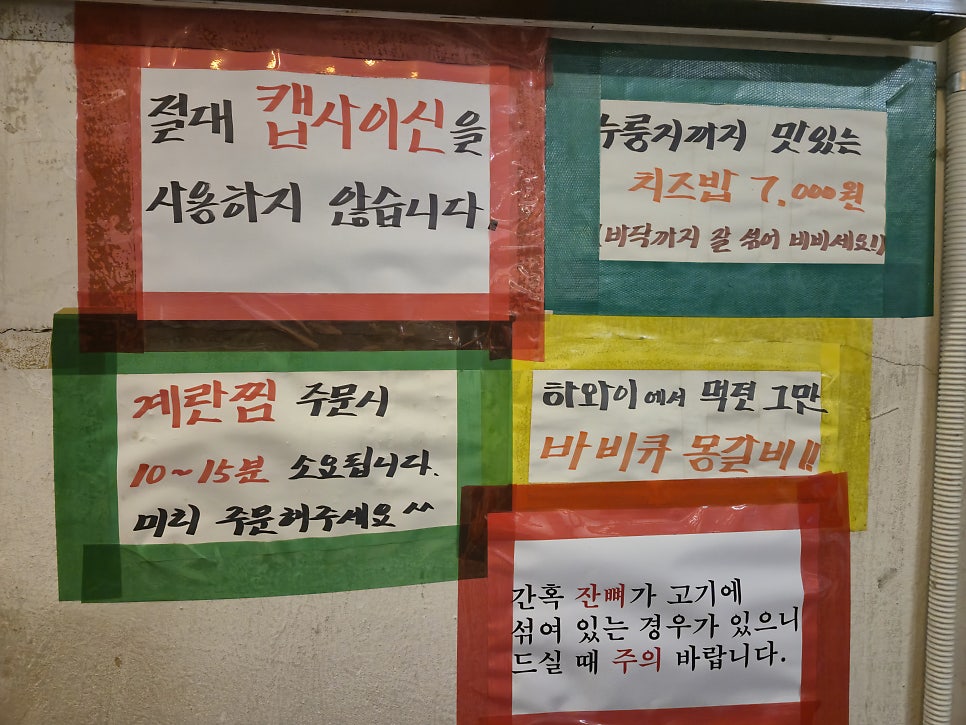 절대 캡사이신을
사용하지 않습니다.
누룽지까지 맛있는
치즈밥 7,000원
(바닥까지 잘 섞어 비비세요!!)
계란찜 주문시
10~15분 소요됩니다.
미리 주문해주세요^^
하와이에서 먹던 그맛
바비큐 몽갈비!!
간혹 잔뼈가 고기에
섞여 있는 경우가 있으니
드실 때 주의 바랍니다.